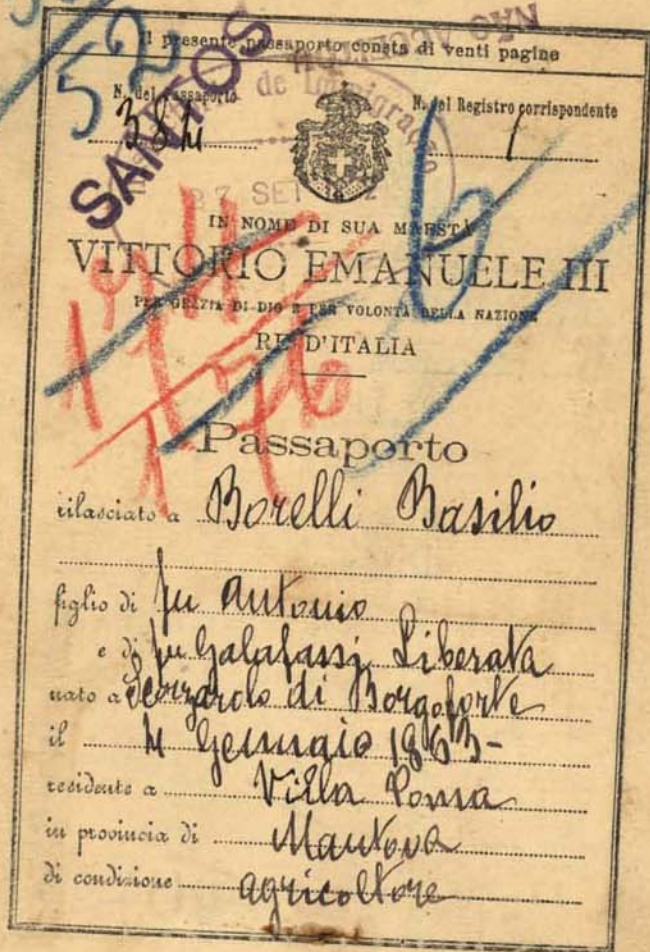 NÃO
Il presente passaporto consta di venti pagine
52
SANTOS
N. del Passaporto
N. del Registro corrispondente
de Immigração
384
1
6
27 SET
IN NOME DI SUA MAESTÀ
VITTORIO EMANUELE III
PER GRAZIA DI DIO E PER VOLONTÀ DELLA NAZIONE
RE D'ITALIA
Passaporto
rilasciato a Borelli Basilio
figlio di fu Antonio
e di fu Galafassi Liberata
nato a Scorzarolo di Borgoforte
il 4 Gennaio 1863-
residente a Villa Poma
in provincia di Mantova
di condizione agricoltore